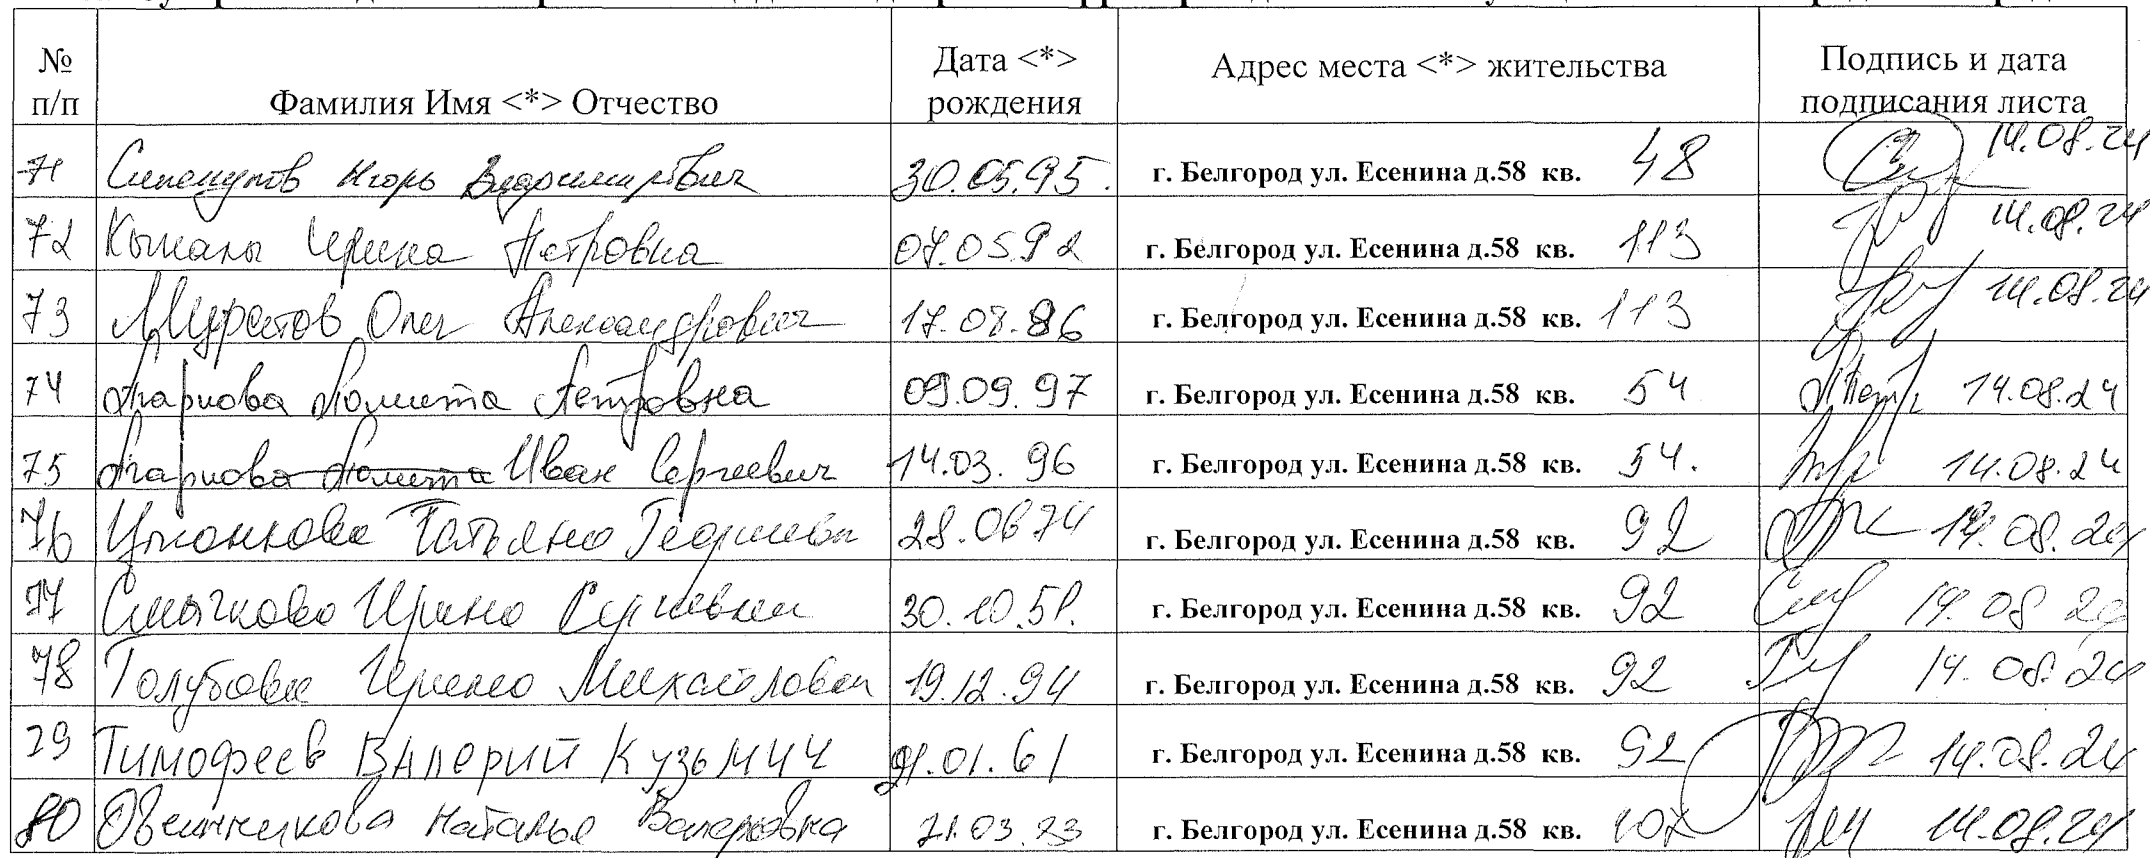 № п/п Фамилия Имя <*> Отчество Дата <*> рождения Адрес места <*> жительства Подпись и дата подписания листа
71 Игорь Владимирович 30.05.95. г. Белгород ул. Есенина д.58 кв. 48 14.08.24
72 Ирина Петровна 07.05.92 г. Белгород ул. Есенина д.58 кв. 113 14.08.24
73 Муратов Олег Александрович 17.08.86 г. Белгород ул. Есенина д.58 кв. 113 14.08.24
74 Лолита Петровна 09.09.97 г. Белгород ул. Есенина д.58 кв. 54 14.08.24
75 Иван Сергеевич 14.03.96 г. Белгород ул. Есенина д.58 кв. 54. 14.08.24
76 Татьяна Георгиевн 28.06 74 г. Белгород ул. Есенина д.58 кв. 92 14.08.24
77 Смычкова Ирина Сергеевна 30.10.51. г. Белгород ул. Есенина д.58 кв. 92 14.08 24
78 Голубова Ирина Михайловна 19.12.94 г. Белгород ул. Есенина д.58 кв. 92 14.08.24
79 Тимофеев Валерий Кузьмич 01.61 г. Белгород ул. Есенина д.58 кв. 92 14.08.24
80 Овчинникова Наталья Валерьевна г. Белгород ул. Есенина д.58 кв. 107 14.08.24